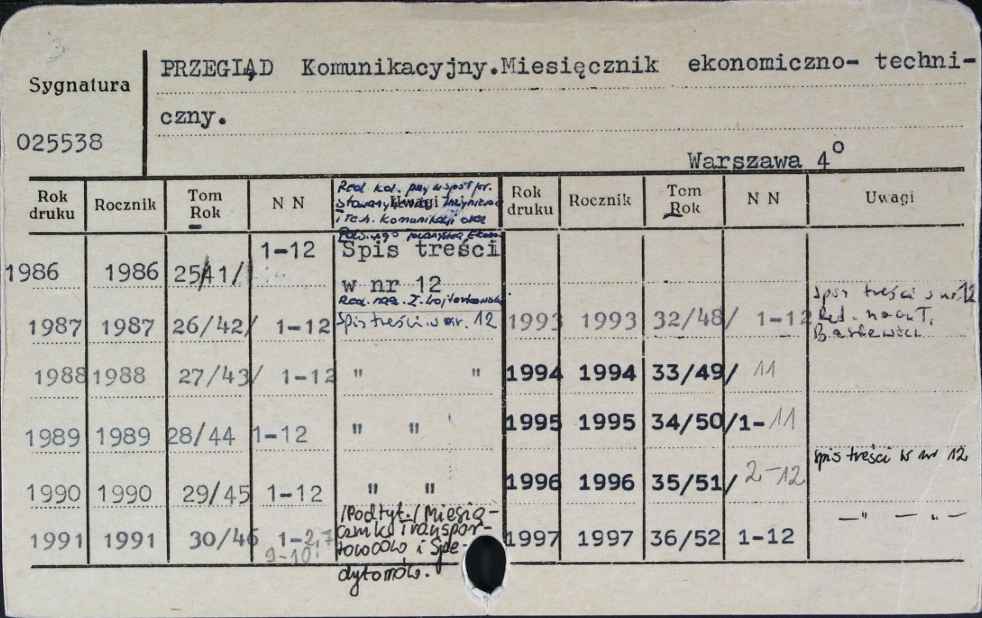 Sygnatura
025538
PRZEGLĄD Komunikacyjny.Miesięcznik ekonomiczno- techni-
czny.
Warszawa 4°
Rok druku Rocznik Tom Rok N N Uwagi
Red. kol. przy współpr.
i Tech. Komunikacji oraz
1986 1986 25/41/ 1-12 Spis treści
w nr 12
1987 1987 26/42/ 1-12 Spis treści w nr. 12
1988 1988 27/43/ 1-12 " "
1989 1989 28/44 1-12 " "
1990 1990 29/45 1-12 " "
1991 1991 30/46 1-2,7
9-10
/Podtyt./Miesię-
cznik Transpor-
towców i Spe-
dytorów.
Rok druku Rocznik Tom Rok N N Uwagi
1993 1993 32/48/ 1-12 Spis treści w nr 12
Red. nacz. T.
1994 1994 33/49/ 11
1995 1995 34/50/ 1-11
1996 1996 35/51/ 2-12 Spis treści w nr 12
1997 1997 36/52 1-12 —"— "—